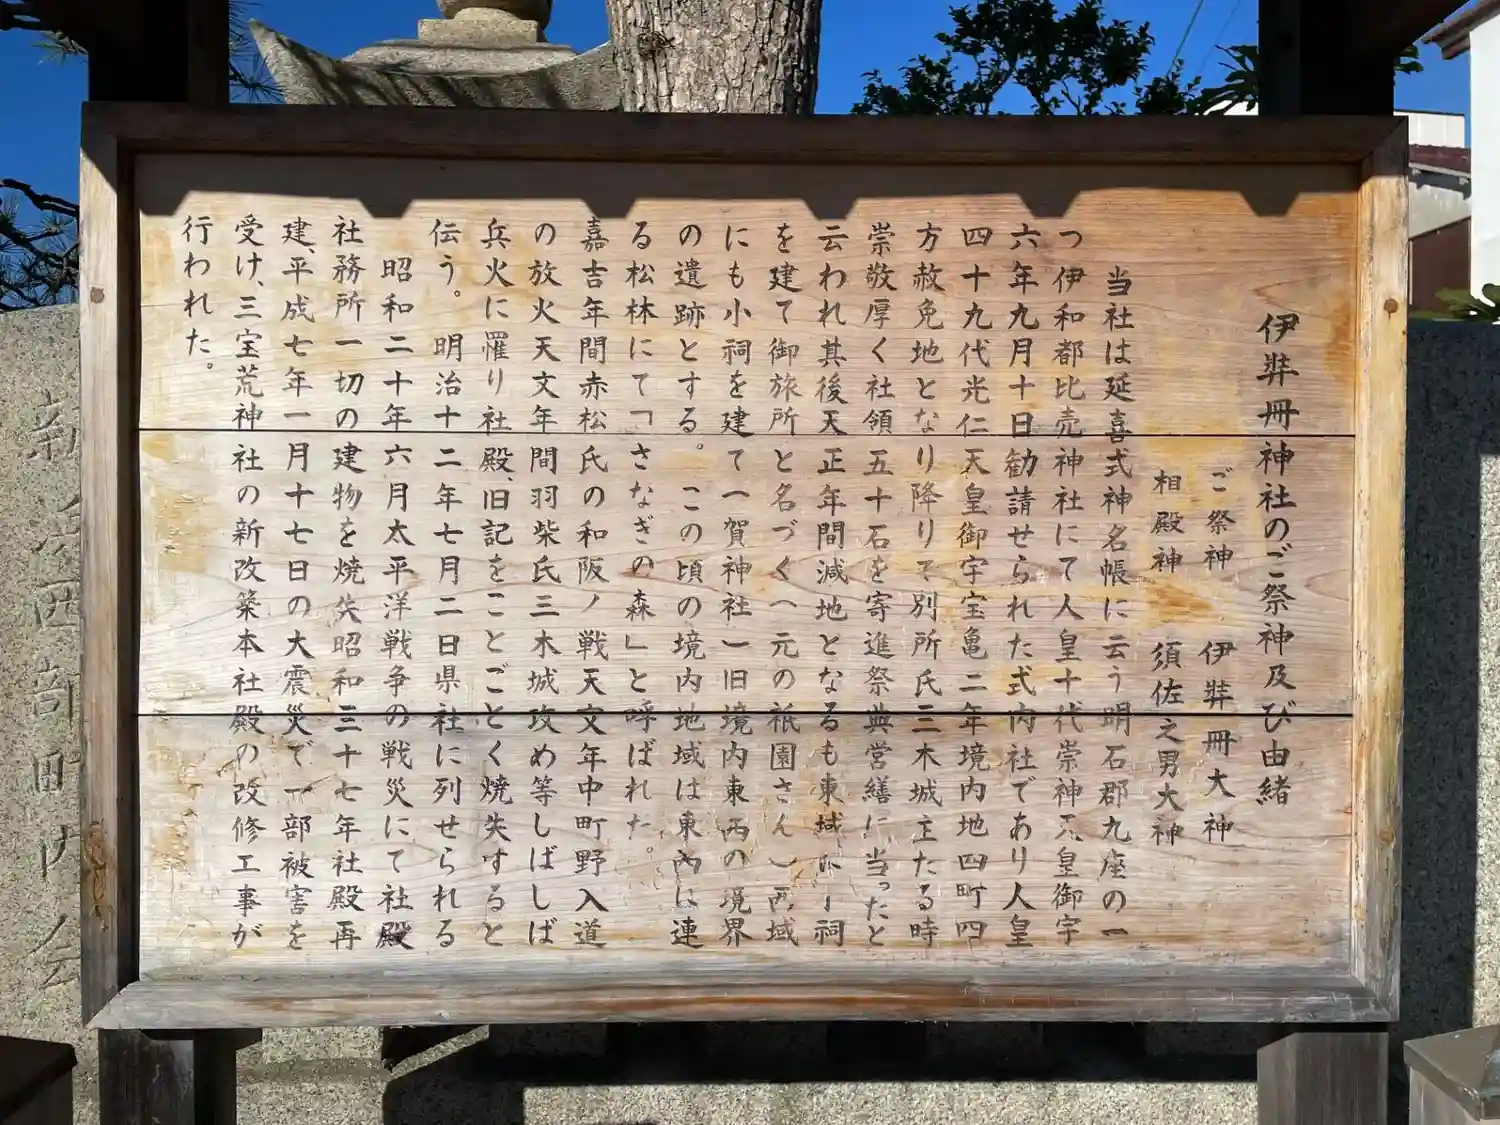 伊弉冊神社のご祭神及び由緒
ご祭神　伊弉冊大神
相殿神　須佐之男大神
当社は延喜式神名帳に云う明石郡九座の一
つ伊和都比売神社にて人皇十代崇神天皇御宇
六年九月十日勧請せられた式内社であり人皇
四十九代光仁天皇御宇宝亀二年境内地四町四
方赦免地となり降りて別所氏三木城主たる時
崇敬厚く社領五十石を寄進祭典営繕に当ったと
云われ其後天正年間減地となるも東域に一祠
を建て御旅所と名づく(元の祇園さん)西域
にも小祠を建て一賀神社一旧境内東西の境界
の遺跡とする。この頃の境内地域は東內に連
る松林にて「さなぎの森」と呼ばれた。
嘉吉年間赤松氏の和阪ノ戦天文年中町野入道
の放火天文年間羽柴氏三木城攻め等しばしば
兵火に罹り社殿、旧記をことごとく焼失すると
伝う。明治十二年七月二日県社に列せられる
昭和二十年六月太平洋戦争の戦災にて社殿
社務所一切の建物を焼失昭和三十七年社殿再
建、平成七年一月十七日の大震災で一部被害を
受け、三宝荒神社の新改築本社殿の改修工事が
行われた。